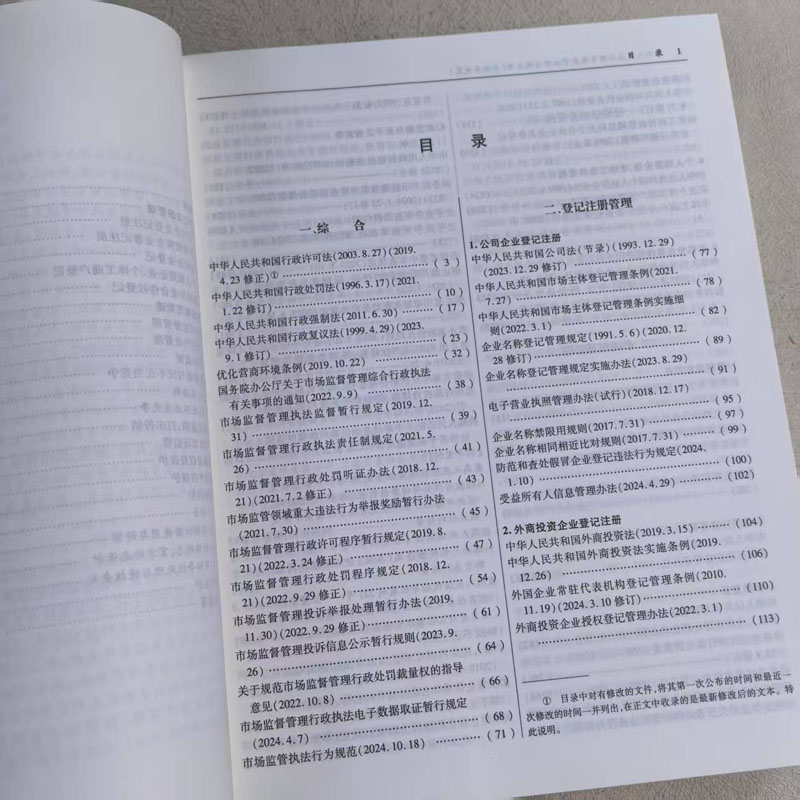 目 录 1
目 录
一、综 合
中华人民共和国行政许可法(2003.8.27)(2019.
4.23 修正)① ( 3 )
中华人民共和国行政处罚法(1996.3.17)(2021.
1.22 修订) ( 10 )
中华人民共和国行政强制法(2011.6.30) ( 17 )
中华人民共和国行政复议法(1999.4.29)(2023.
9.1 修订) ( 23 )
优化营商环境条例(2019.10.22) ( 32 )
国务院办公厅关于市场监督管理综合行政执法
有关事项的通知(2022.9.9) ( 38 )
市场监督管理执法监督暂行规定(2019.12.
31) ( 39 )
市场监督管理行政执法责任制规定(2021.5.
26) ( 41 )
市场监督管理行政处罚听证办法(2018.12.
21)(2021.7.2 修正) ( 43 )
市场监管领域重大违法行为举报奖励暂行办法
(2021.7.30) ( 45 )
市场监督管理行政许可程序暂行规定(2019.8.
21)(2022.3.24 修正) ( 47 )
市场监督管理行政处罚程序规定(2018.12.
21)(2022.9.29 修正) ( 54 )
市场监督管理投诉举报处理暂行办法(2019.
11.30)(2022.9.29 修正) ( 61 )
市场监督管理投诉信息公示暂行规则(2023.9.
26) ( 64 )
关于规范市场监督管理行政处罚裁量权的指导
意见(2022.10.8) ( 66 )
市场监督管理行政执法电子数据取证暂行规定
(2024.4.7) ( 68 )
市场监管执法行为规范(2024.10.18) ( 71 )
二、登记注册管理
1. 公司企业登记注册
中华人民共和国公司法(节录)(1993.12.29)
(2023.12.29 修订) ( 77 )
中华人民共和国市场主体登记管理条例(2021.
7.27) ( 78 )
中华人民共和国市场主体登记管理条例实施细
则(2022.3.1) ( 82 )
企业名称登记管理规定(1991.5.6)(2020.12.
28 修订) ( 89 )
企业名称登记管理规定实施办法(2023.8.29)
( 91 )
电子营业执照管理办法(试行)(2018.12.17)
( 95 )
企业名称禁限用规则(2017.7.31) ( 97 )
企业名称相同相近比对规则(2017.7.31) ( 99 )
防范和查处假冒企业登记违法行为规定(2024.
1.10) (100)
受益所有人信息管理办法(2024.4.29) (102)
2. 外商投资企业登记注册
中华人民共和国外商投资法(2019.3.15) (104)
中华人民共和国外商投资法实施条例(2019.
12.26) (106)
外国企业常驻代表机构登记管理条例(2010.
11.19)(2024.3.10 修订) (110)
外商投资企业授权登记管理办法(2022.3.1)
(113)
① 目录中对有修改的文件,将其第一次公布的时间和最近一
次修改的时间一并列出,在正文中收录的是最新修改后的文本。特
此说明。